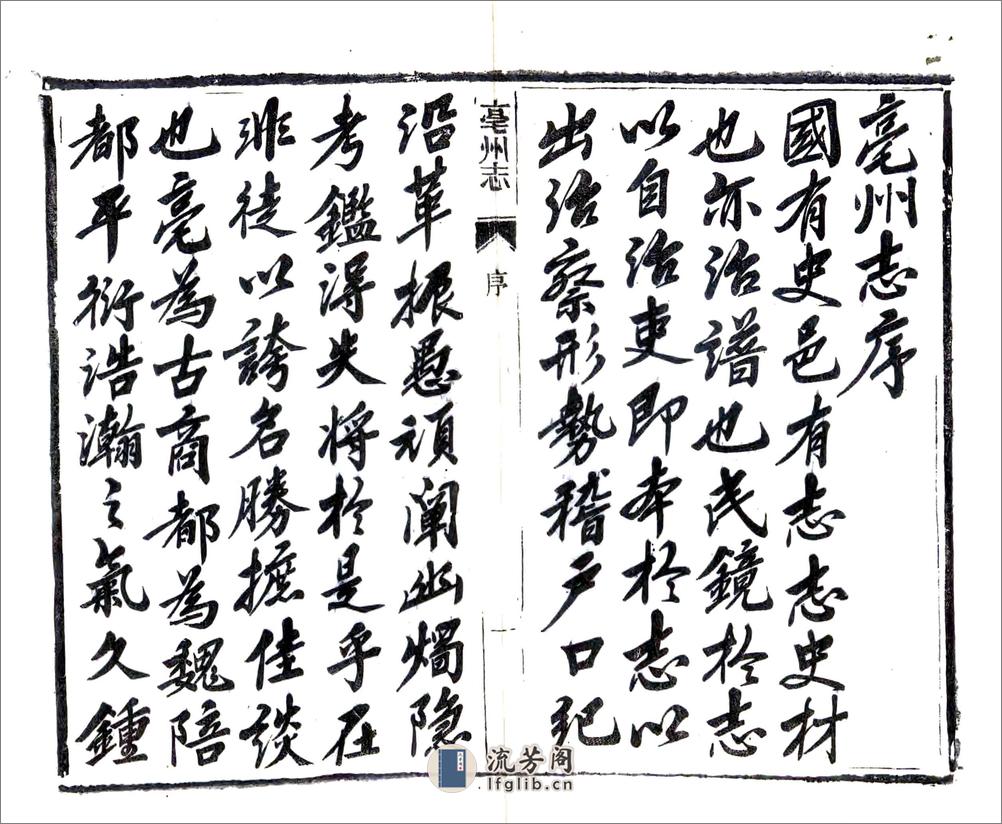 亳州志序
國有史邑有志志史材
也亦治譜也民鏡於志
以自治吏即本於志以
出治察形勢稽户口紀
亳州志
序
沿革振愚頑闡幽燭隐
考鑑得失將於是乎在
非徒以誇名勝摭佳談
也亳為古商都為魏陪
都平衍浩瀚之氣久鍾
流芳阁
lfglib.cn